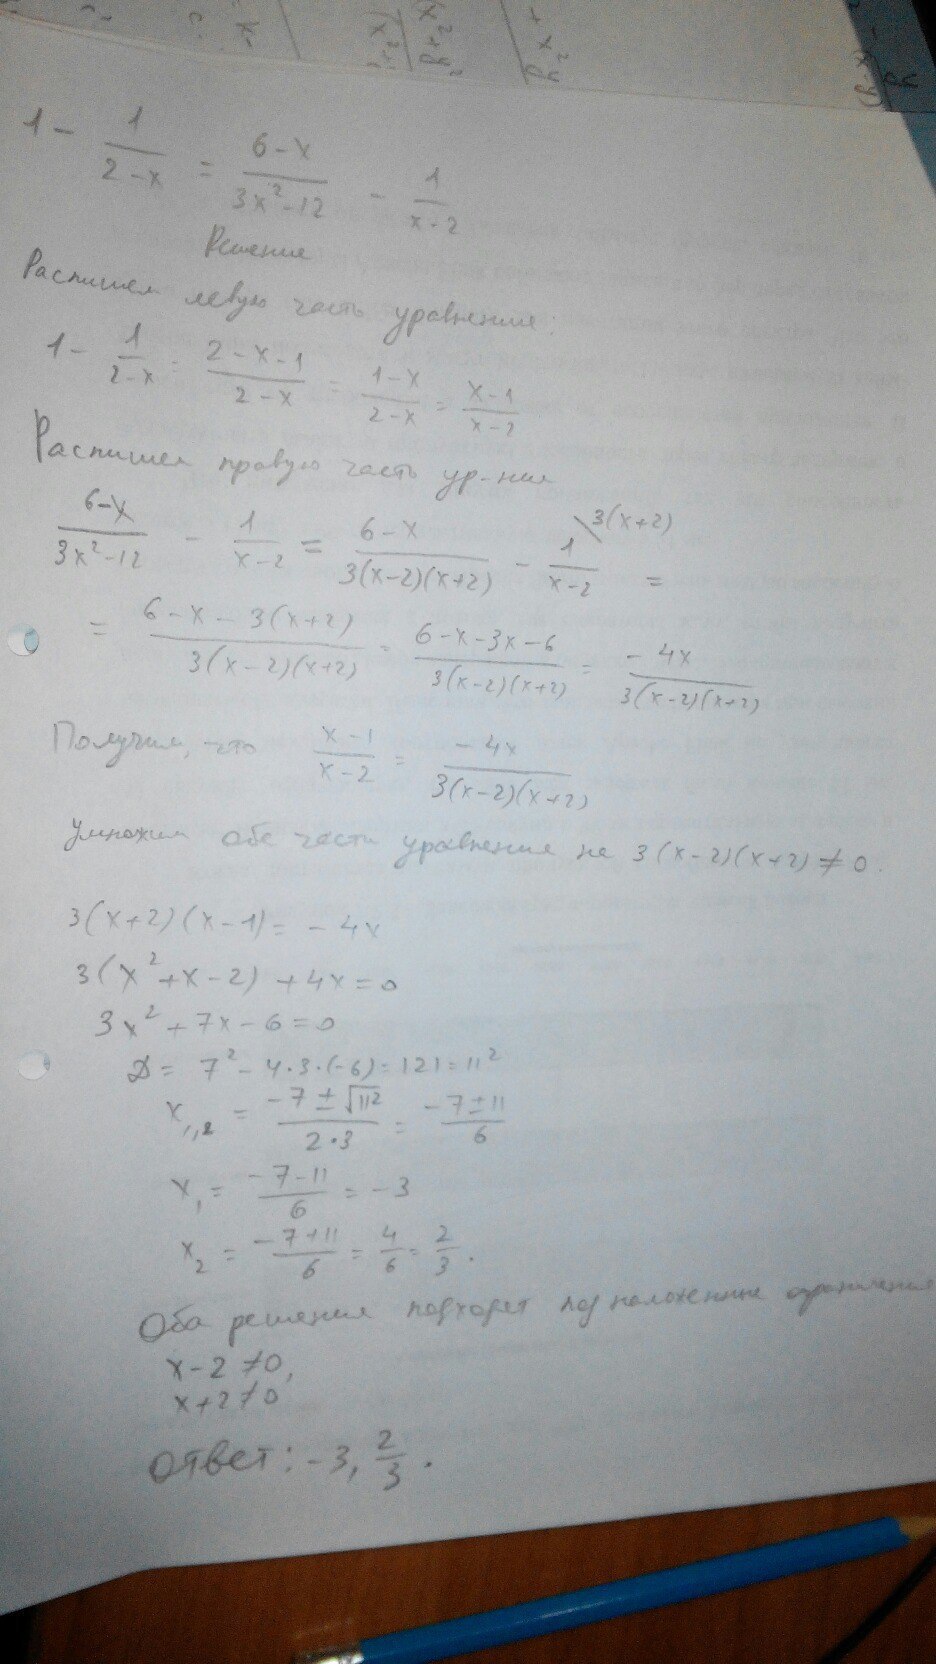 1 - 1/(2-x) = (6-x)/(3x²-12) - 1/(x-2)
Решение
Распишем левую часть уравнения:
1 - 1/(2-x) = (2-x-1)/(2-x) = (1-x)/(2-x) = (x-1)/(x-2)
Распишем правую часть ур-ния
(6-x)/(3x²-12) - 1/(x-2) = (6-x)/(3(x-2)(x+2)) - 1\3(x+2)/(x-2) =
= (6-x-3(x+2))/(3(x-2)(x+2)) = (6-x-3x-6)/(3(x-2)(x+2)) = (-4x)/(3(x-2)(x+2))
Получим, что (x-1)/(x-2) = (-4x)/(3(x-2)(x+2))
Умножим обе части уравнения на 3(x-2)(x+2) ≠ 0.
3(x+2)(x-1) = -4x
3(x²+x-2) + 4x = 0
3x² + 7x - 6 = 0
D = 7² - 4·3·(-6) = 121 = 11²
x₁,₂ = (-7 ± √11²)/(2·3) = (-7±11)/6
x₁ = (-7-11)/6 = -3
x₂ = (-7+11)/6 = 4/6 = 2/3.
Оба решения подходят под наложенные ограничения
x-2 ≠ 0,
x+2 ≠ 0
Ответ: -3, 2/3.